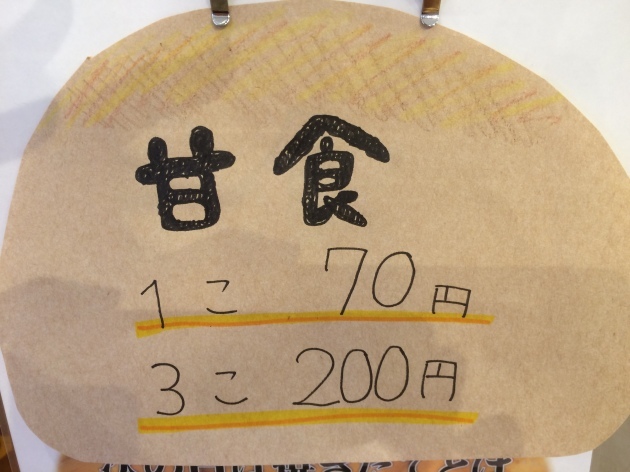 甘食
1こ 70円
3こ 200円